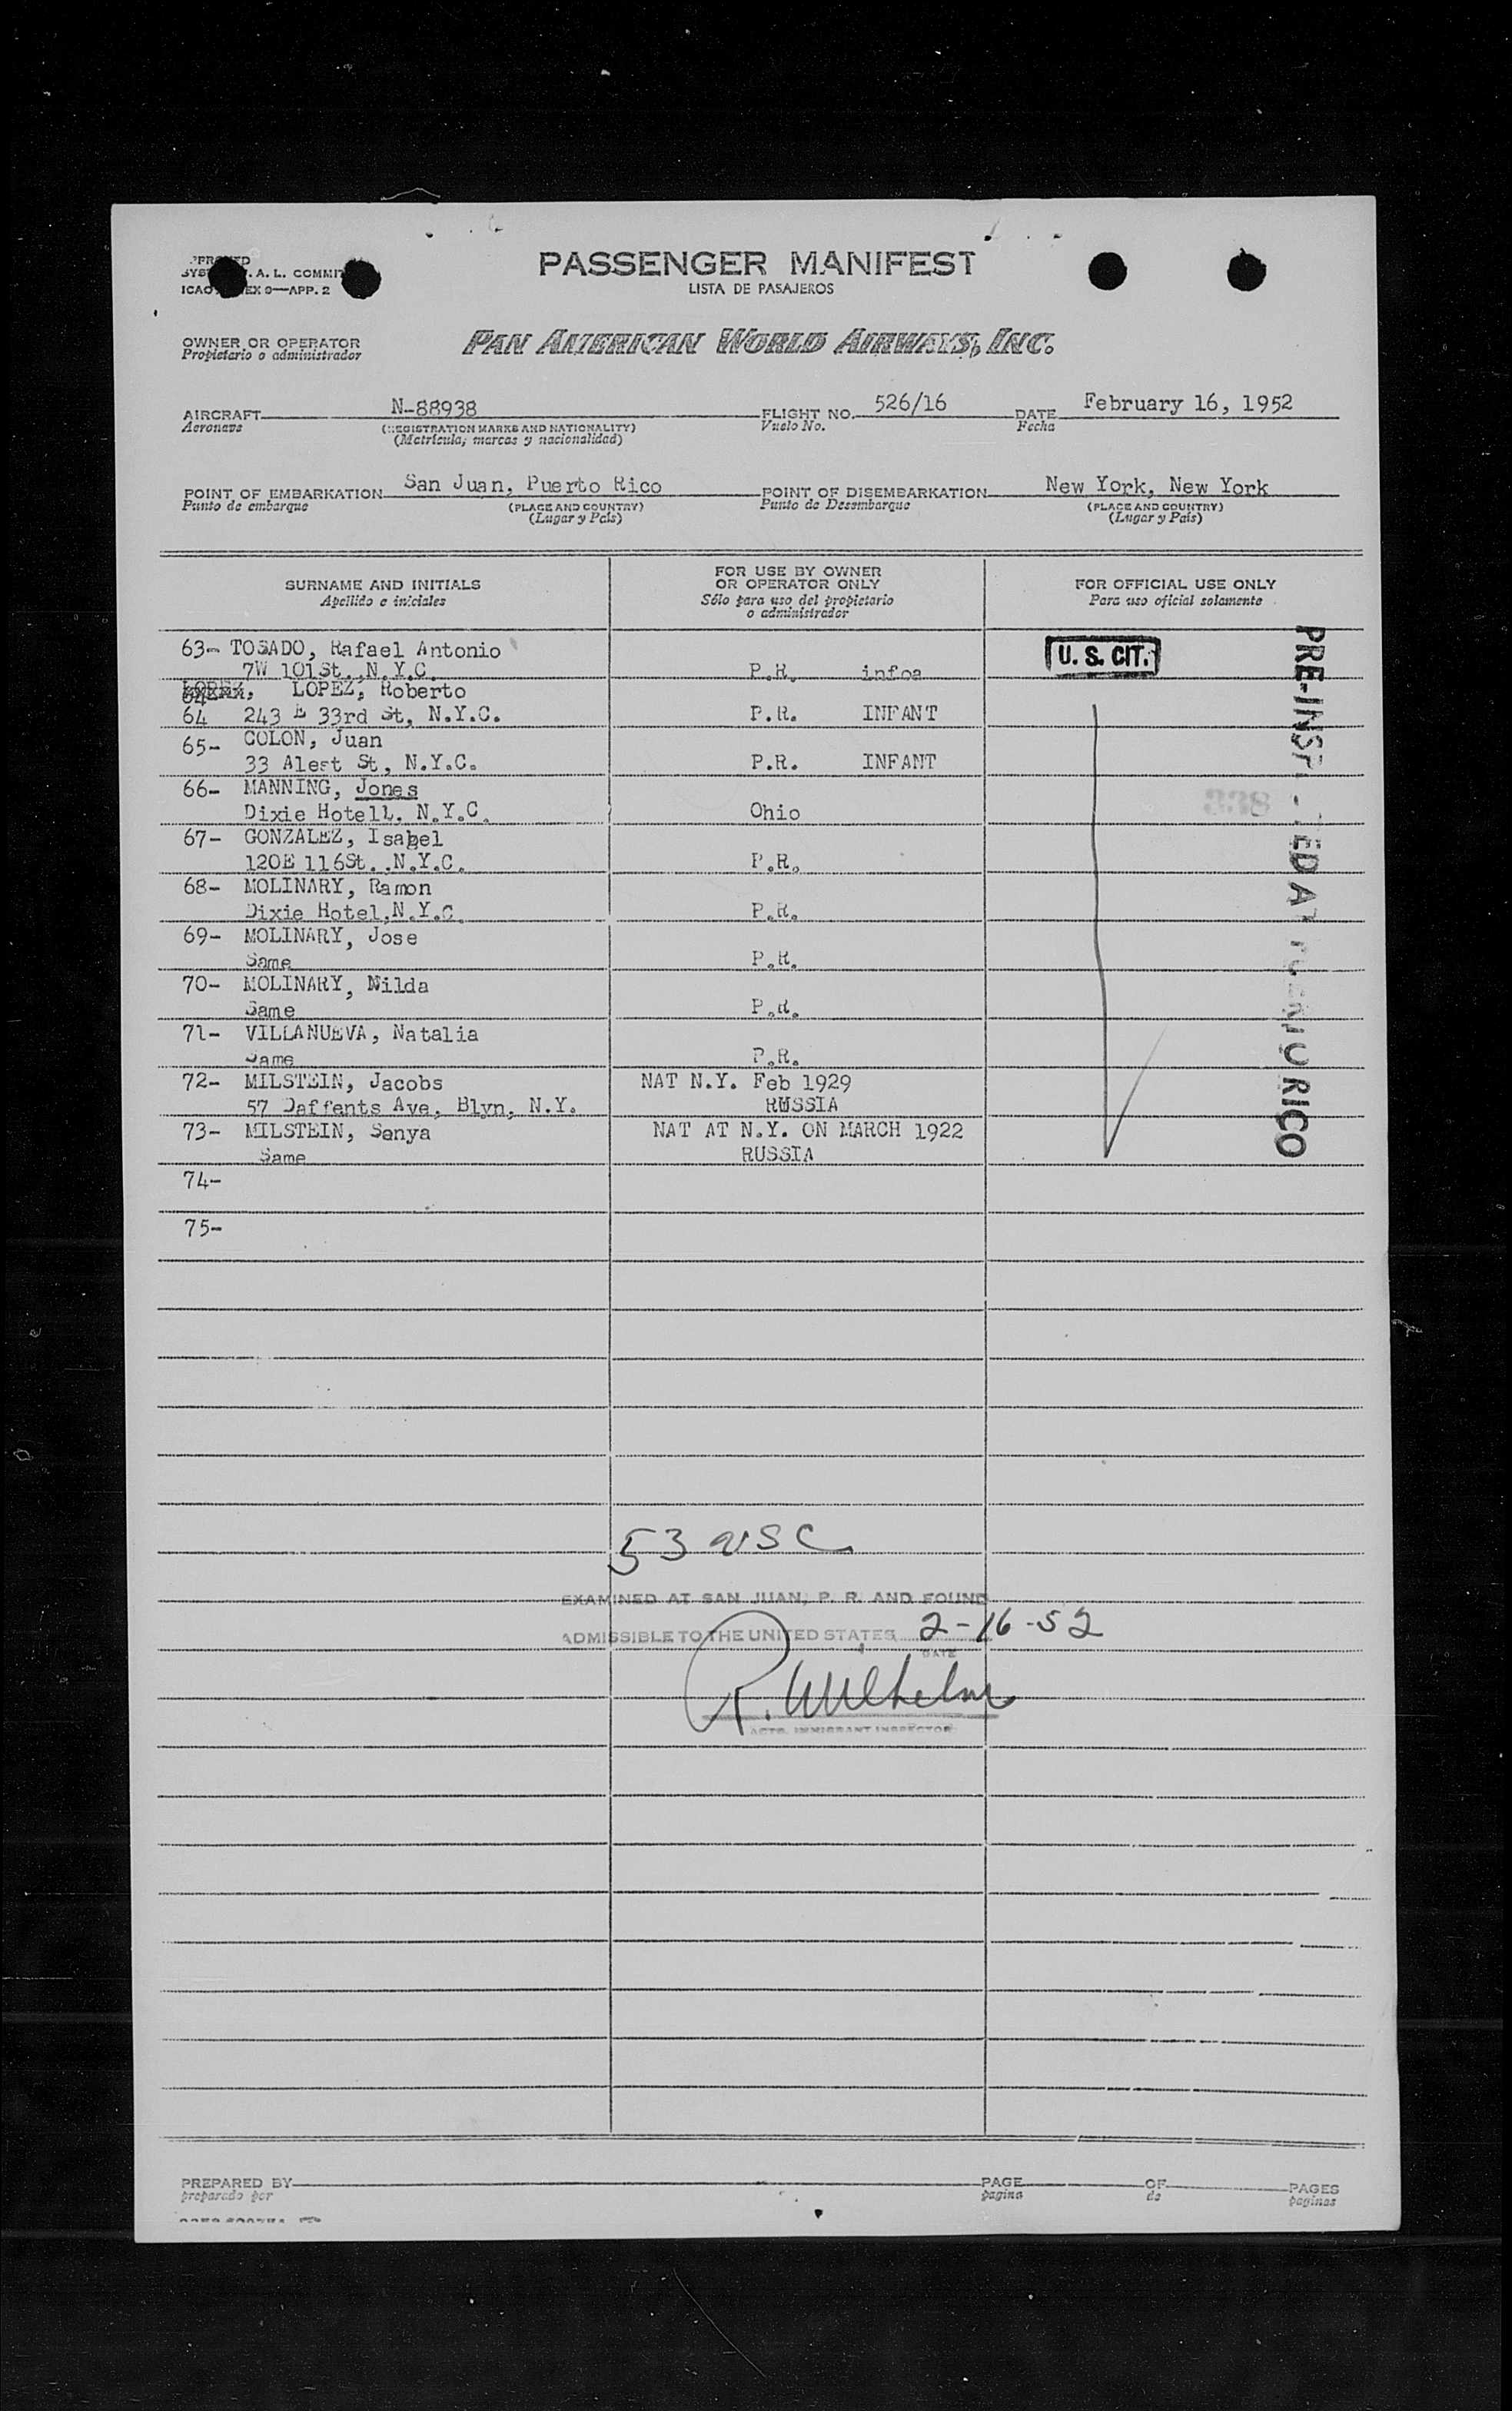 PASSENGER MANIFEST
LISTA DE PASAJEROS
A. L. COMMIT
ICAO EX 9—APP. 2
OWNER OR OPERATOR
Propietario o administrador
PAN AMERICAN WORLD AIRWAYS, INC.
AIRCRAFT N-88938 FLIGHT NO. 526/16 DATE February 16, 1952
Aeronave (REGISTRATION MARKS AND NATIONALITY) Vuelo No. Fecha
(Matrícula, marcas y nacionalidad)
POINT OF EMBARKATION San Juan, Puerto Rico POINT OF DISEMBARKATION New York, New York
Punto de embarque (PLACE AND COUNTRY) Punto de Desembarque (PLACE AND COUNTRY)
(Lugar y País) (Lugar y País)
SURNAME AND INITIALS
Apellido e iniciales
FOR USE BY OWNER
OR OPERATOR ONLY
Sólo para uso del propietario
o administrador
FOR OFFICIAL USE ONLY
Para uso oficial solamente
63- TOSADO, Rafael Antonio
7W 101St., N.Y.C. P.R. infoa
U. S. CIT.
LOPEZ, Roberto
64 243 E 33rd St, N.Y.C. P.R. INFANT
65- COLON, Juan
33 Alest St, N.Y.C. P.R. INFANT
66- MANNING, Jones
Dixie Hotell. N.Y.C. Ohio
338
67- GONZALEZ, Isabel
120E 116St. .N.Y.C. P.R.
68- MOLINARY, Ramon
Dixie Hotel,N.Y.C. P.R.
69- MOLINARY, Jose
Same P.R.
70- MOLINARY, Nilda
Same P.R.
71- VILLANUEVA, Natalia
Same P.R.
72- MILSTEIN, Jacobs NAT N.Y. Feb 1929
57 Daffents Ave, Blyn, N.Y. RUSSIA
73- MILSTEIN, Sanya NAT AT N.Y. ON MARCH 1922
Same RUSSIA
74-
75-
PRE-INSP ED AT RICO
53 USC
EXAMINED AT SAN JUAN, P. R. AND FOUND
ADMISSIBLE TO THE UNITED STATES 2-16-52
DATE
R. Wilhelm
ACTG. IMMIGRANT INSPECTOR
PREPARED BY PAGE OF PAGES
preparado por pagina de paginas